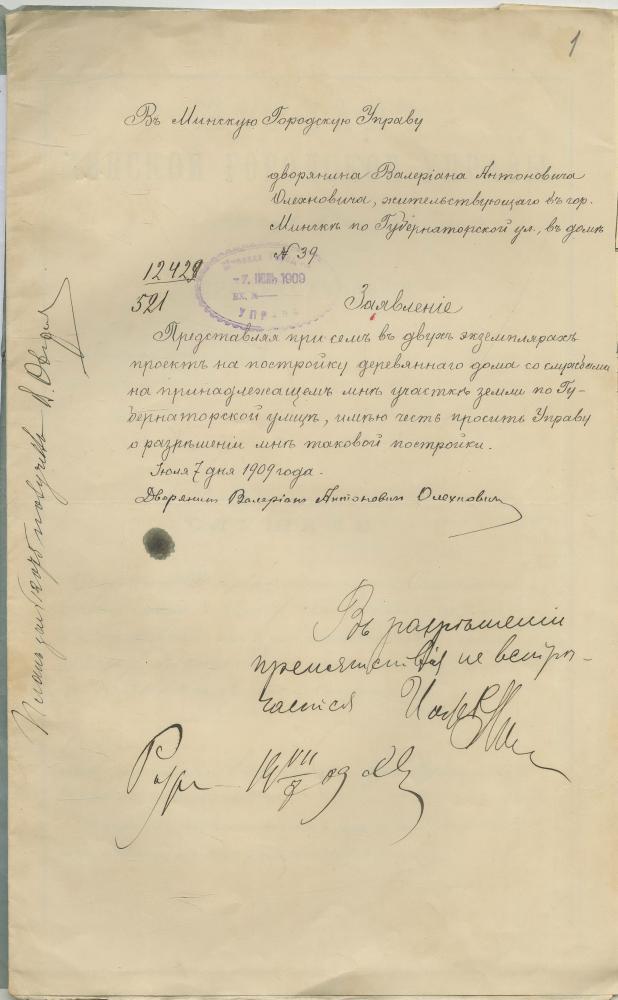 1
Въ Минскую Городскую Управу
дворянина Валеріана Антоновича
Олехновича, жительствующаго въ гор.
Минскѣ по Губернаторской ул., въ домѣ
№ 39
12429
521
7 ІЮЛЬ 1909
ВХ. №
УПРАВА
Заявленіе
Представляя при семъ въ двухъ экземплярахъ
проектъ на постройку деревяннаго дома со службами
на принадлежащемъ мнѣ участкѣ земли по Гу-
бернаторской улицѣ, имѣю честь просить Управу
о разрѣшеніи мнѣ таковой постройки.
Іюля 7 дня 1909 года.
Дворянинъ Валеріанъ Антоновичъ Олехновичъ
Въ разрѣшеніи
препятствія не встрѣ-
чается
Разр. 19 VII/7 09
получилъ